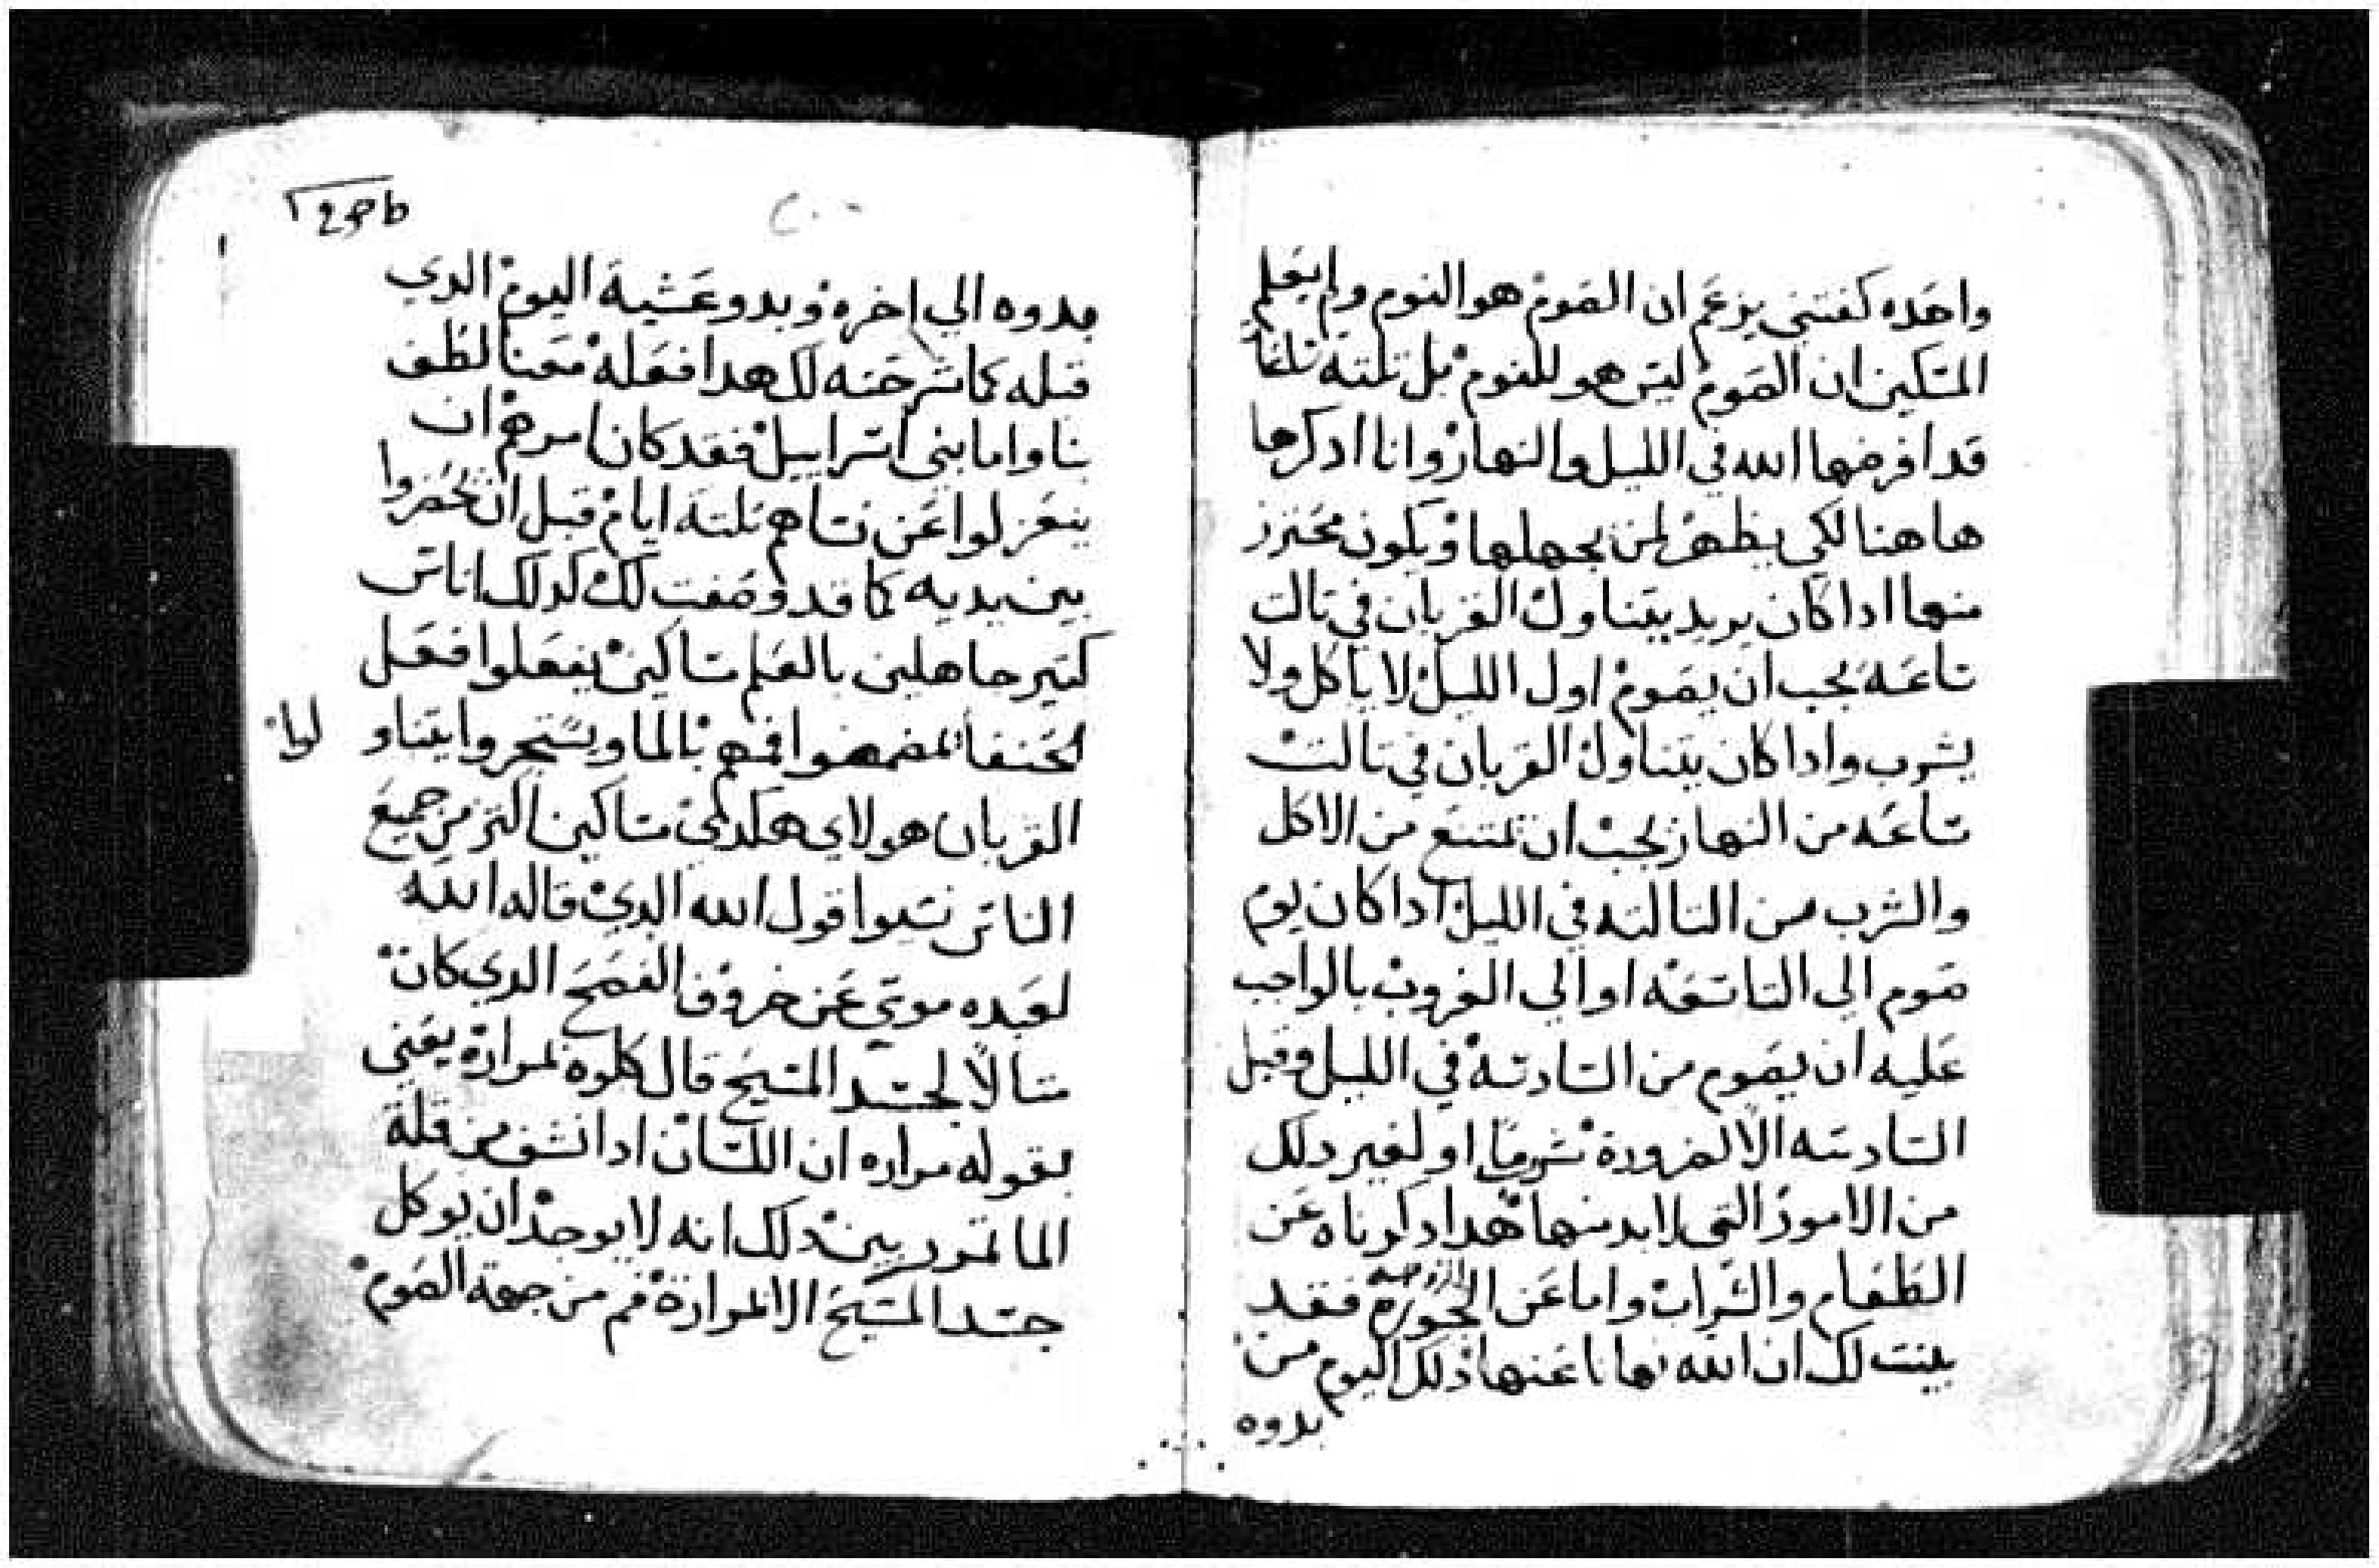 واحده كفتني يزعم ان الصوم هو النوم ولم يعلم
المسكين ان الصوم ليس هو للنوم بل تلته تلغا
قد افرضها الله في الليل والنهار وانا ادكرها
هاهنا لكي يظهر لمن يجهلها ويكون محترز
منها ادا كان يريد يتناول القربان في تالت
ساعه يجب ان يصوم اول الليل لا ياكل ولا
يشرب وادا كان يتناول القربان في تالت
ساعه من النهار يجب ان يمتنع من الاكل
والشرب من التالته في الليل ادا كان يوم
صوم الى التاسعه او الي الغروب بالواجب
عليه ان يصوم من السادسة في الليل وقبل
السادسه الا لضرورة او لغير دلك
من الامور التي لابد منها هدا دكرناه عن
الطعام والشراب واما عن فقد
بينت لك ان الله نهانا عنها دلك اليوم من
بدوه
بدوه الي اخره وبدو عشية اليوم الدي
قبله كما شرحته لك هدا فعله معنا لطف
بنا واما بني اسراييل فقد كان امرهم ان
ينعزلوا عن نساهم تلتة ايام قبل ان يحضروا
بين يديه كما قد وصفت لك كدلك اناس
كتير جاهلين بالعلم مساكين يفعلوا فعل
الحنفا يمضمضوا افمهم بالما ويستجروا يتناو لوا
القربان هولاي هكدي مساكين اكتر من جميع
الناس نسيوا قول الله الدي قاله الله
لعبده موسي عن خروف الفصح الدي كان
متالا لجسد المسيح قال كلوه بمراره يعني
بقوله مراره ان اللسان ادا نشف من قلة
الما تمرر يبين دلك انه لا يوجد ان يوكل
جسد المسيح الا بمرارة فم من جهة الصوم